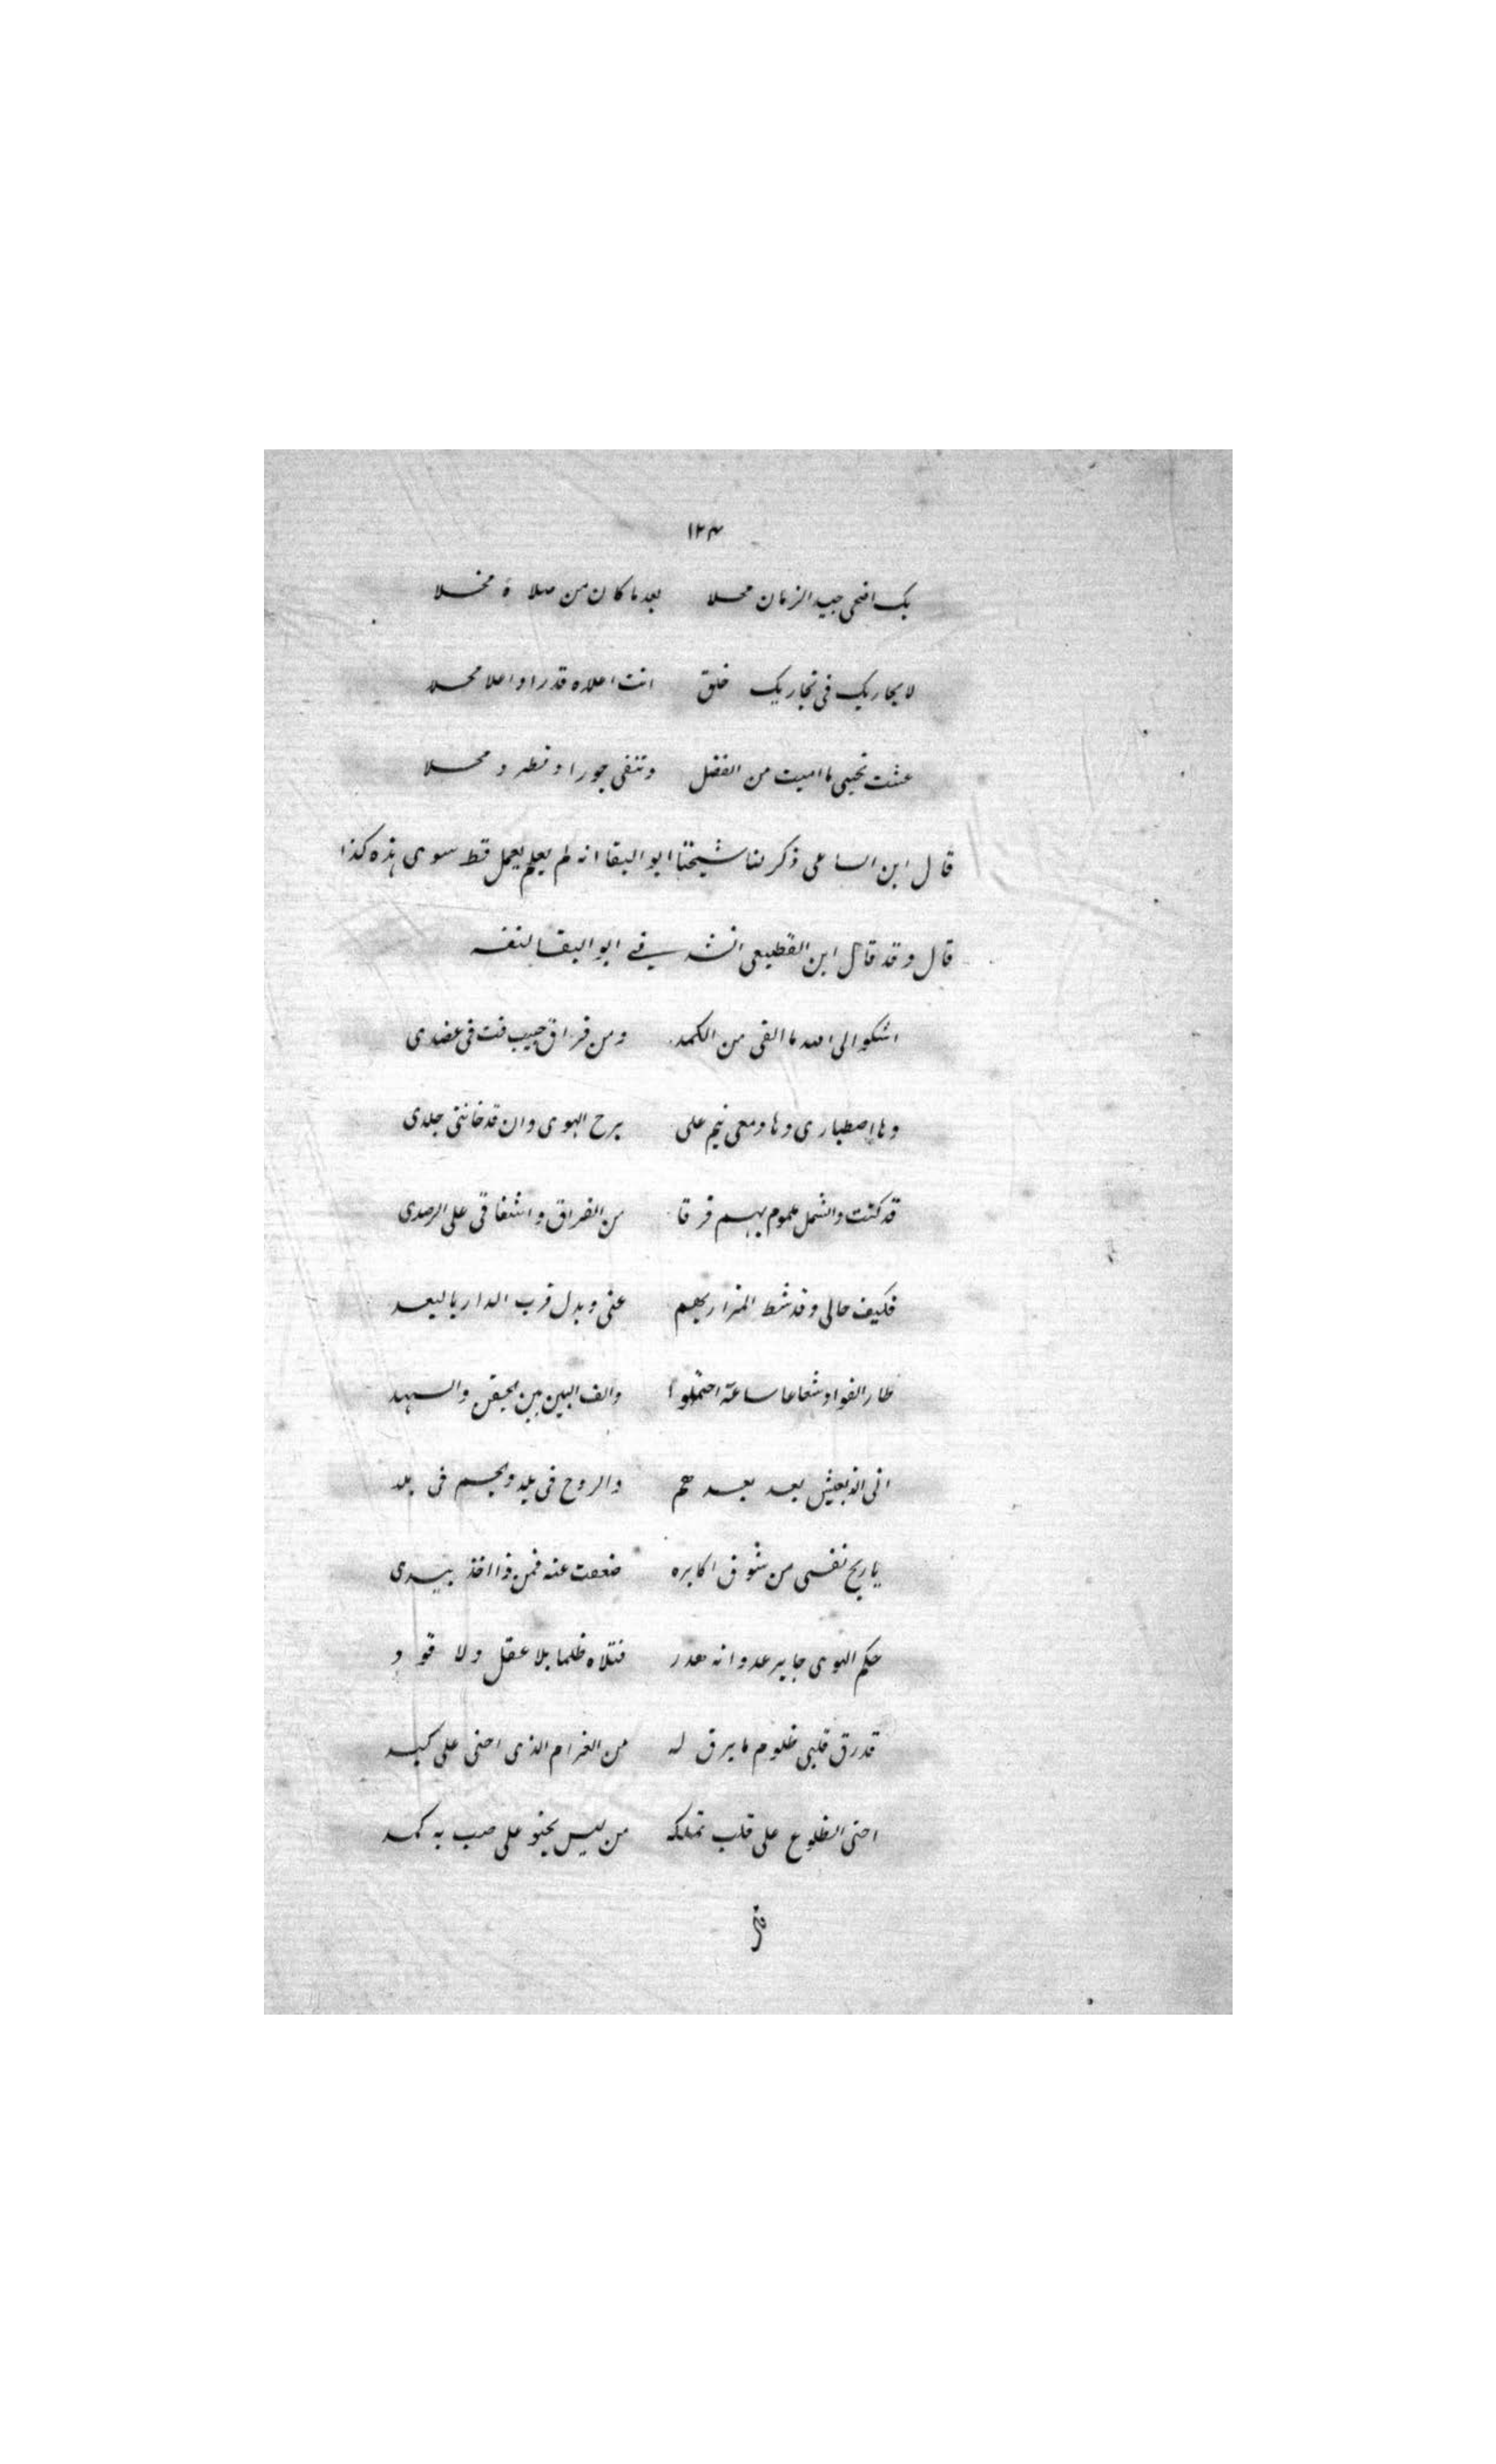 ١٢٣
بك اضحى جيد الزمان محلا بعد ما كان من ملاه مخلا
لا يجاريك فى تجاريك خلق انت اعلاه قدرا واعلا محلا
عشت تحيى ما اميت من الفضل وتنفى جورا وتطرد محلا
قال ابن الساعى ذكر لنا شيخنا ابو البقا انه لم يعلم يعمل قط سوى هذه كذا
قال وقد قال ابن القطيعى انشدنى ابو البقا لنفسه
اشكو الى الله ما القى من الكمد ومن فراق حبيب فت فى عضدى
وما اصطبارى وما ومعى ينم على برح الهوى وان قد خاننى جلدى
قد كنت والشمل عموم بهم فرقا من الفراق واشفاقى على الرصدى
فكيف حالى وقد شط المزار بهم عنى وبدل قرب الدار بالبعد
طار الفواد شعاعا ساعة احتملوا والف البين بين الجفن والسهد
انى الذ بعيش بعد بعدهم والروح فى بلد والجسم فى بلد
يا ريح نفسى من شوق اكابره ضعفت عنه فمن ذا اخذ بيدى
حكم الهوى جاير عدوانه هدر قتلاه ظلما بلا عقل ولا قود
قد رق قلبى ظلوم ما يرق له من الغرام الذى احنى على كبد
احنى الظلوع على قلب تملكه من ليس يحنو على صب به كمد